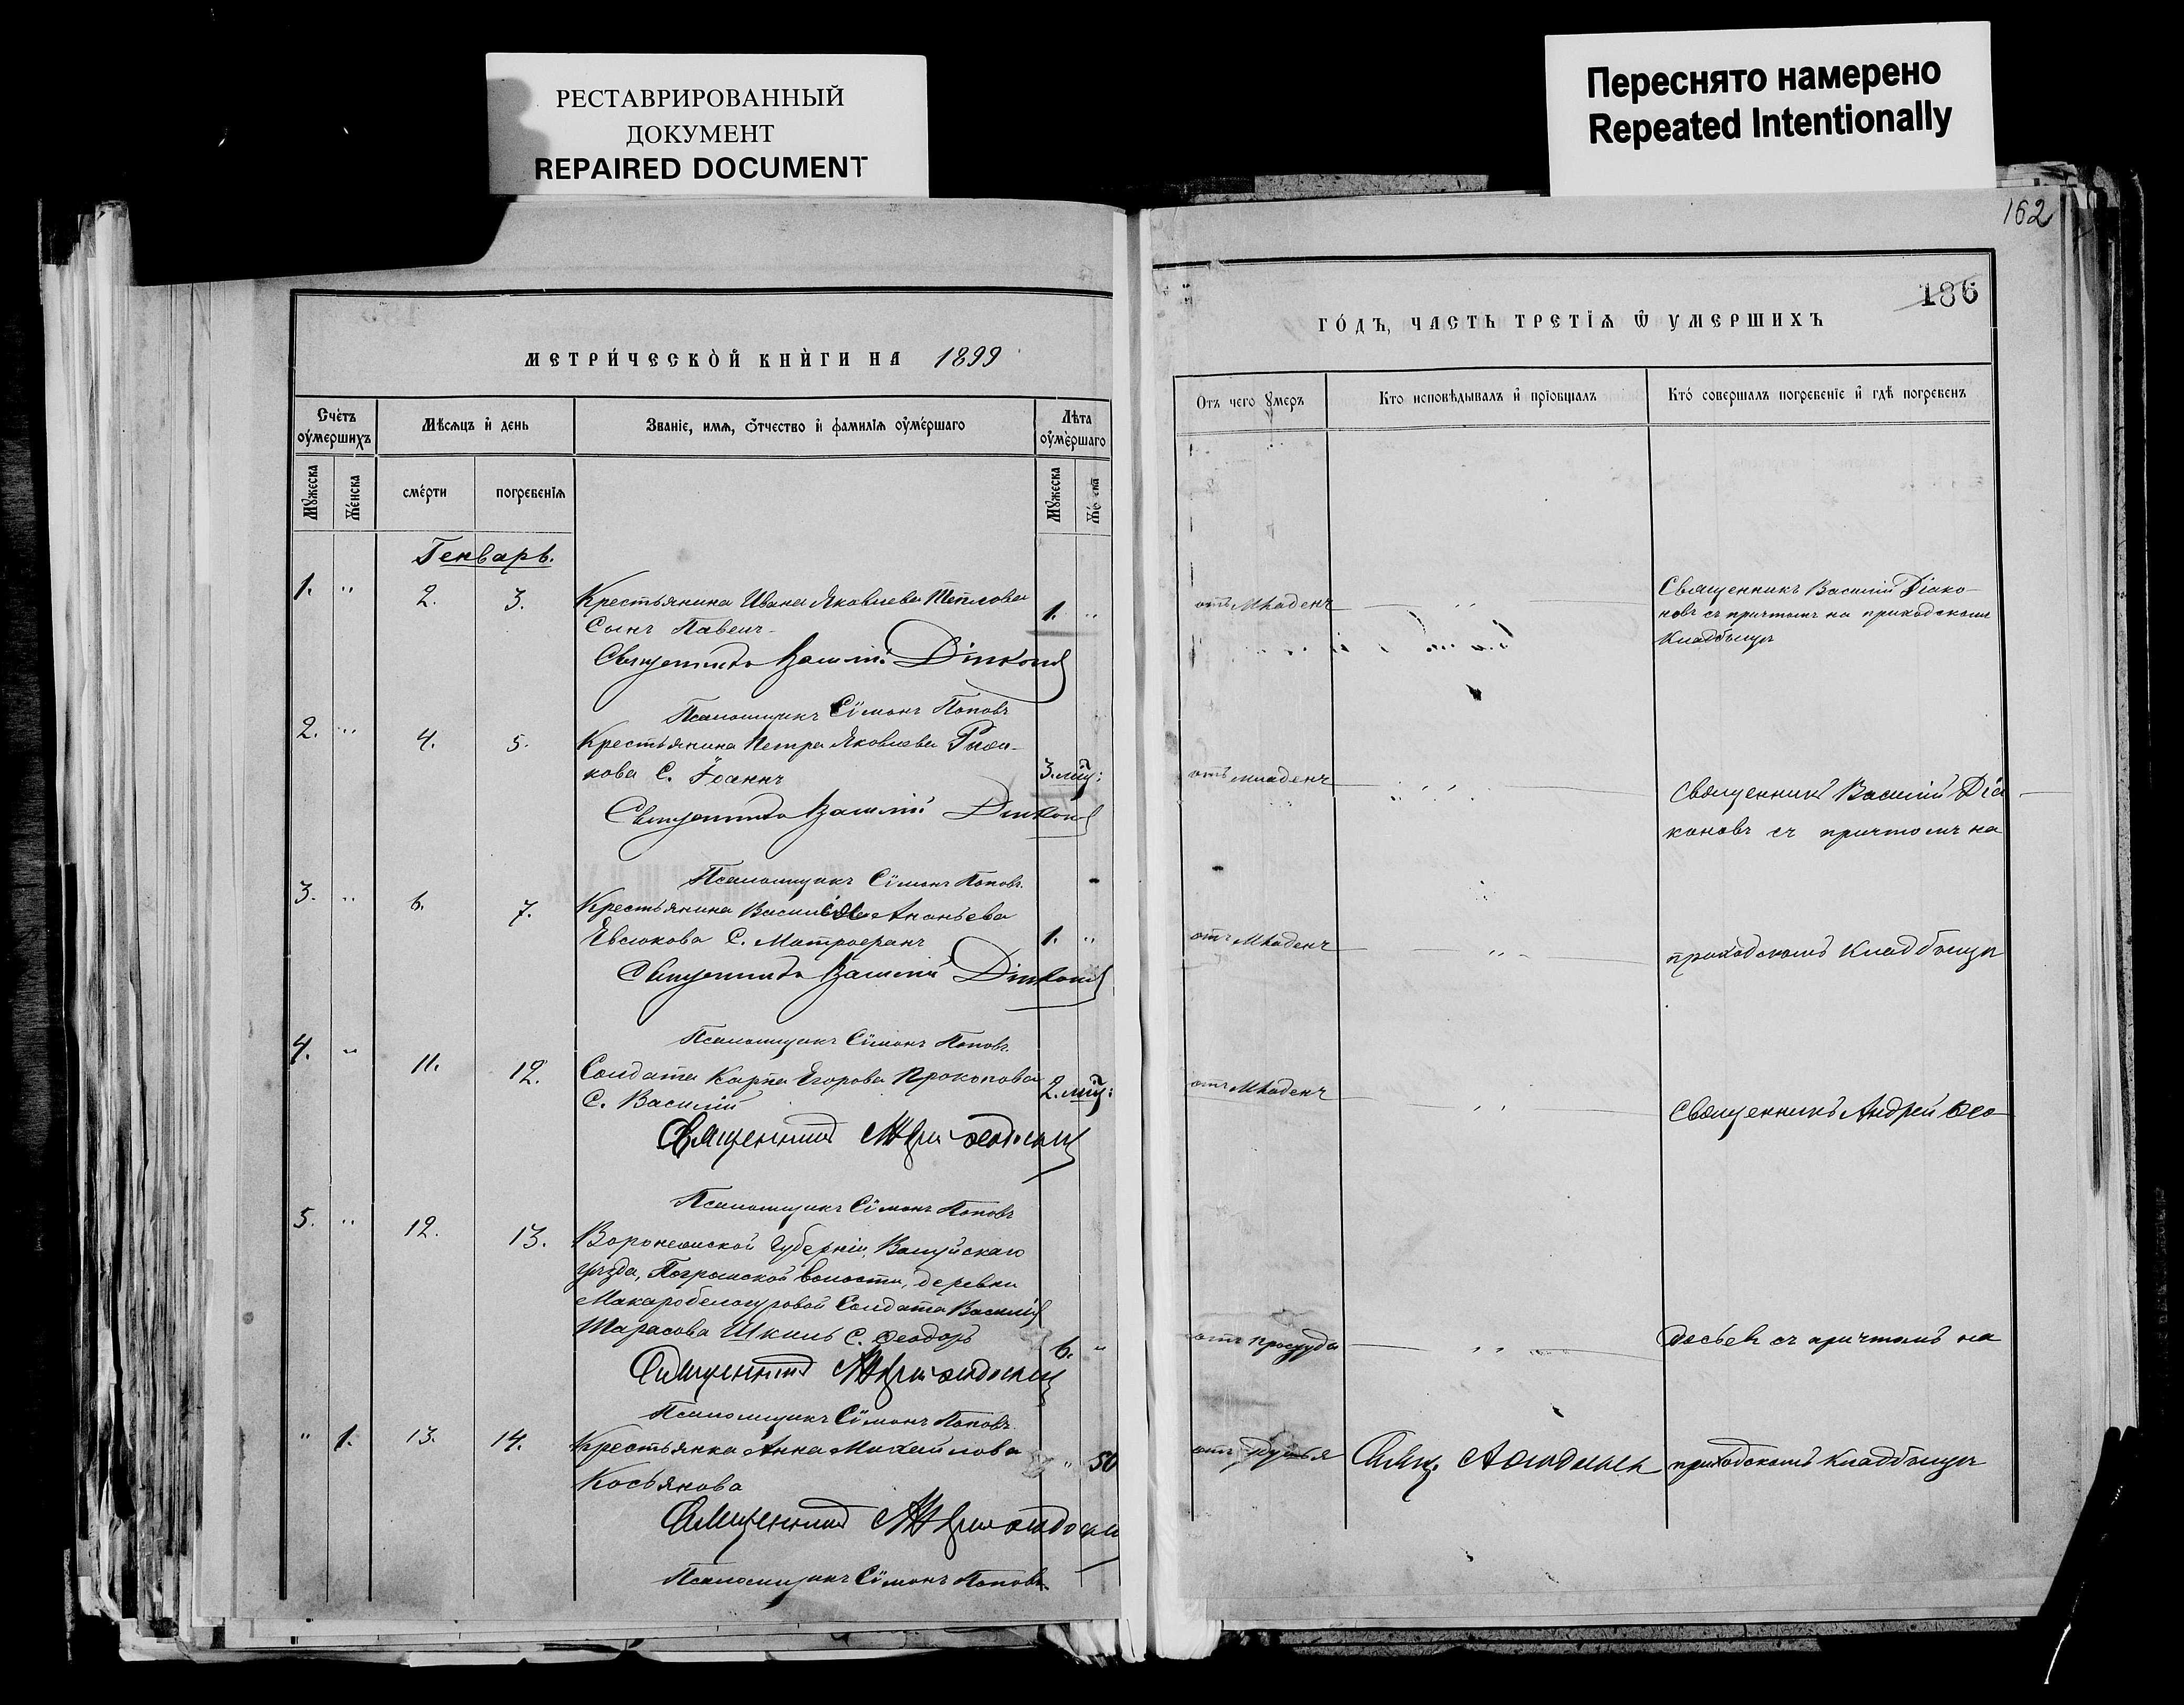 РЕСТАВРИРОВАННЫЙ
ДОКУМЕНТ
REPAIRED DOCUMENT
Переснято намерено
Repeated Intentionally
162
186
МЕТРИ́ЧЕСКОЙ КНИ́ГИ НА 1899
Сче́тъ оу҆ме́ршихъ
Мѣ́сѧцъ и҆ день
Званіе, имѧ, ѻ҆тчество и҆ фамиліѧ оу҆ме́ршаго
Лѣта оу҆ме́ршаго
Мꙋжеска
Же́нска
сме́рти
погребенїѧ
Мꙋжеска
Генварь.
1. " 2. 3. Крестьянина Ивана Яковлева Теплова
Сынъ Павелъ 1. "
Священникъ Василій Діаконовъ
Псаломщикъ Сімонъ Поповъ
2. " 4. 5. Крестьянина Петра Яковлева
кова С. Іоаннъ 3. мц:
Священникъ Василій Діаконовъ
Псаломщикъ Сімонъ Поповъ.
3. " 6. 7. Крестьянина Василія Ананьева
Евсюкова С. Митрофанъ 1. "
Священникъ Василій Діаконовъ
Псаломщикъ Сімонъ Поповъ.
4. " 11. 12. Солдата Карпа Егорова Прокопова
С. Василій 2. мц:
Священникъ Андрей Ѳеодосьевъ
Псаломщикъ Сімонъ Поповъ
5. " 12. 13. Воронежской Губерніи, Валуйскаго
уѣзда, Погромской волости, деревни
Солдата Василія
Тарасова Шкиль С. Ѳеодоръ 6. "
Священникъ Андрей Ѳеодосьевъ
Псаломщикъ Сімонъ Поповъ
" 1. 13. 14. Крестьянка Анна Михайлова
Косьянова " 50
Священникъ Андрей Ѳеодосьевъ
Псаломщикъ Сімонъ Поповъ
ГО́ДЪ, ЧАСТЬ ТРЕТІѦ Ѿ УМЕРШИХЪ
Отъ чего ꙋмеръ
Кто исповѣдывалъ и҆ прїобщалъ
Кто́ совершалъ погребенїе и҆ гдѣ погребенъ
отъ младенч " Священникъ Василій Діако-
новъ съ причтомъ на приходскомъ
кладбищѣ
отъ младенч " Священникъ Василій Діа
коновъ съ причтомъ на
отъ младенч " приходскомъ кладбищѣ
отъ младенч " Священникъ Андрей Ѳео-
отъ простуды " досьевъ съ причтомъ на
отъ Свящ. А Ѳеодосьевъ приходскомъ кладбищѣ